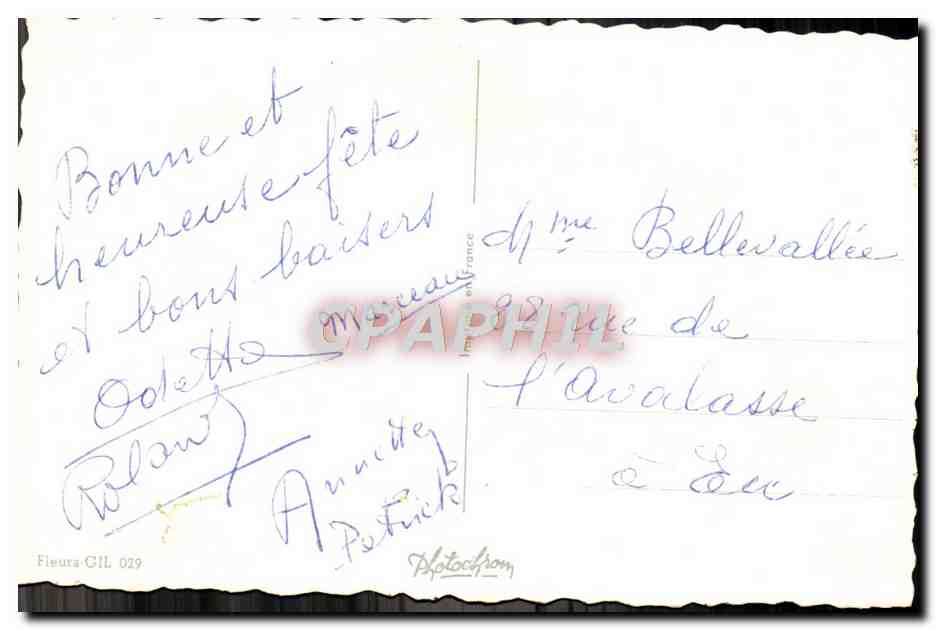 Bonne et
heureuse fête
et bons baisers
Odette Marceau
Roland
Annette
Patrick
Fleurs GIL 029
Photochrom
Imprimé en France
CPAPHIL
Mme Bellevallée
rue de
l'Avalasse
à Eu